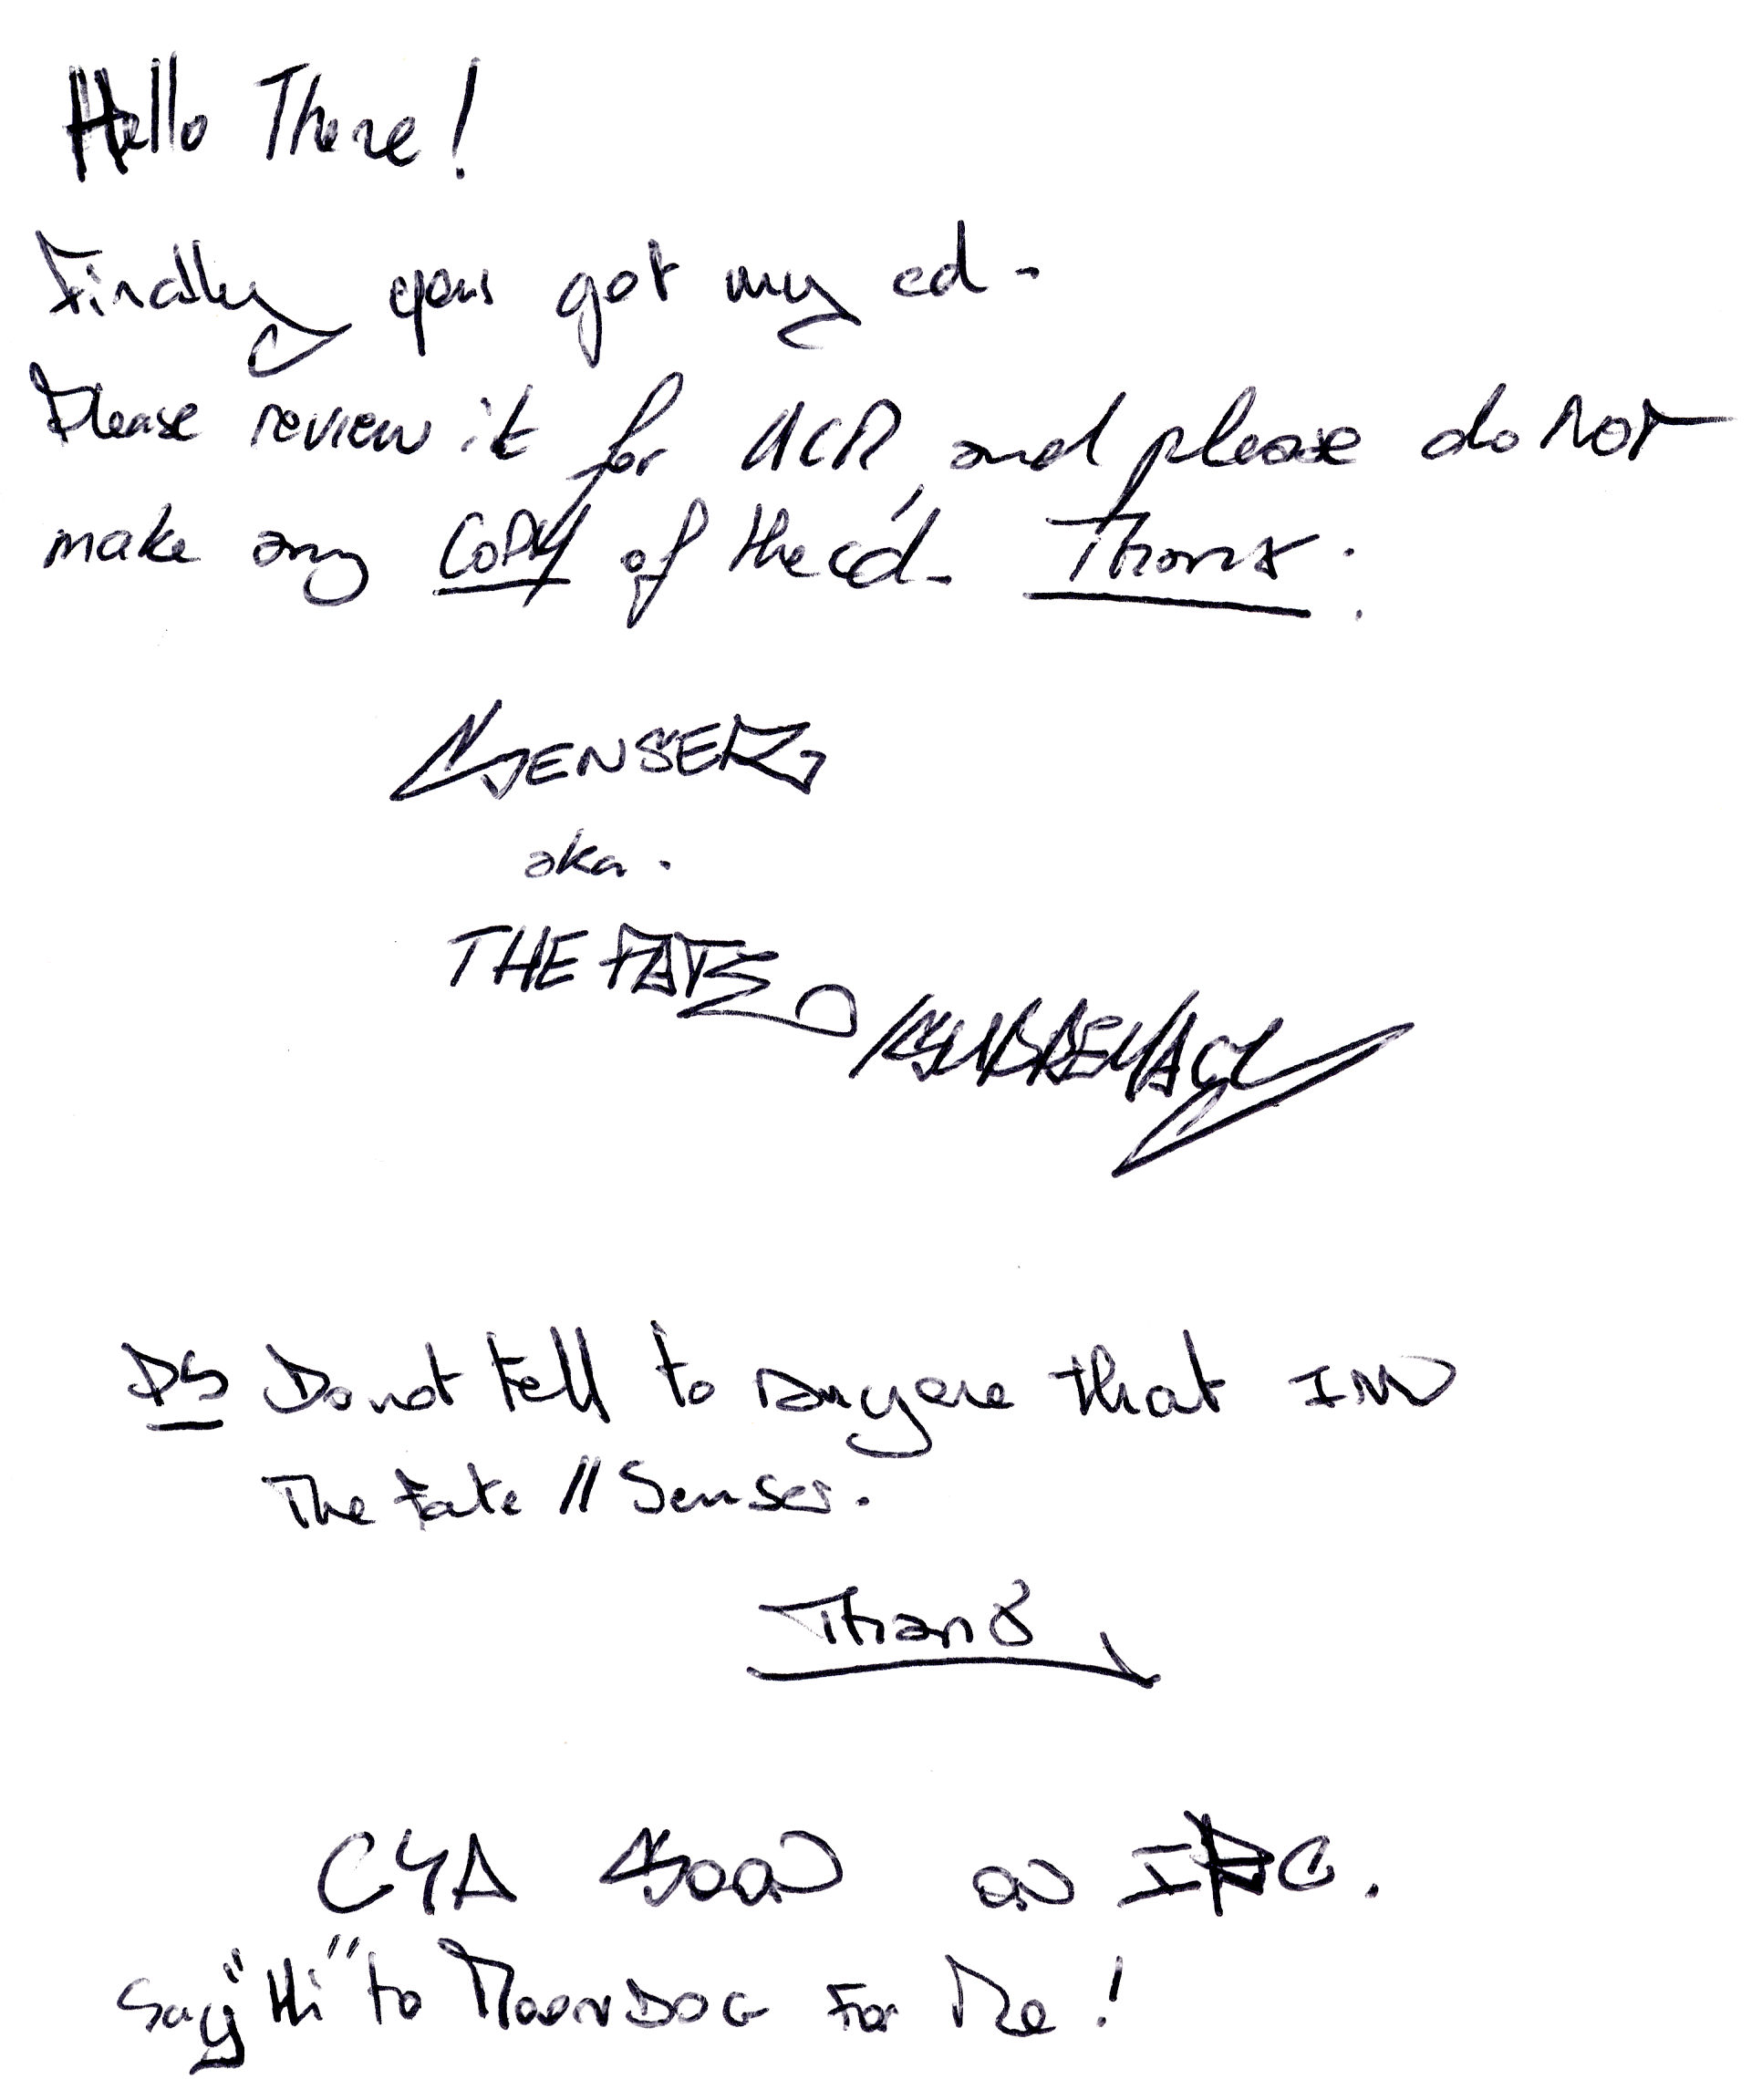 Hello There!
Finally you got my cd-
Please review it for ACR, and please do NOT
make any COPY of the cd- Thanx.
SENSER
aka.
THE FATE
PS Do not tell to anyone that IM
The Fate // Senser.
Thanx
CYA SOON ON IRC.
Say "Hi" to MOONDOG For Me!